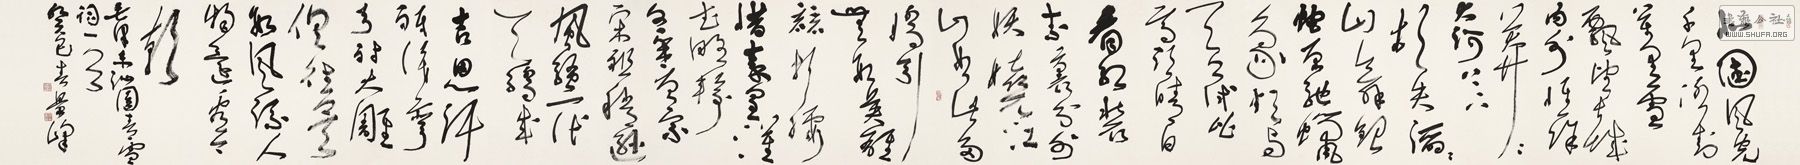 北國風光
千里冰封
萬里雪
飄望長城
內外惟餘
莽莽
大河上下
頓失滔滔
山舞銀
蛇原馳蠟
象欲與
天公試比
高須晴日
看紅裝
素裹分外
妖嬈江
山如此多
嬌引
無數英雄
競折腰
惜秦皇漢
武略輸
文采唐宗
宋祖稍遜
風騷一代
天驕成
吉思汗
只識彎
弓射大雕
俱往矣
數風流人
物還看今
朝
毛澤東沁園春雪
詞一首
癸巳春景峰
WWW.SHUFA.ORG